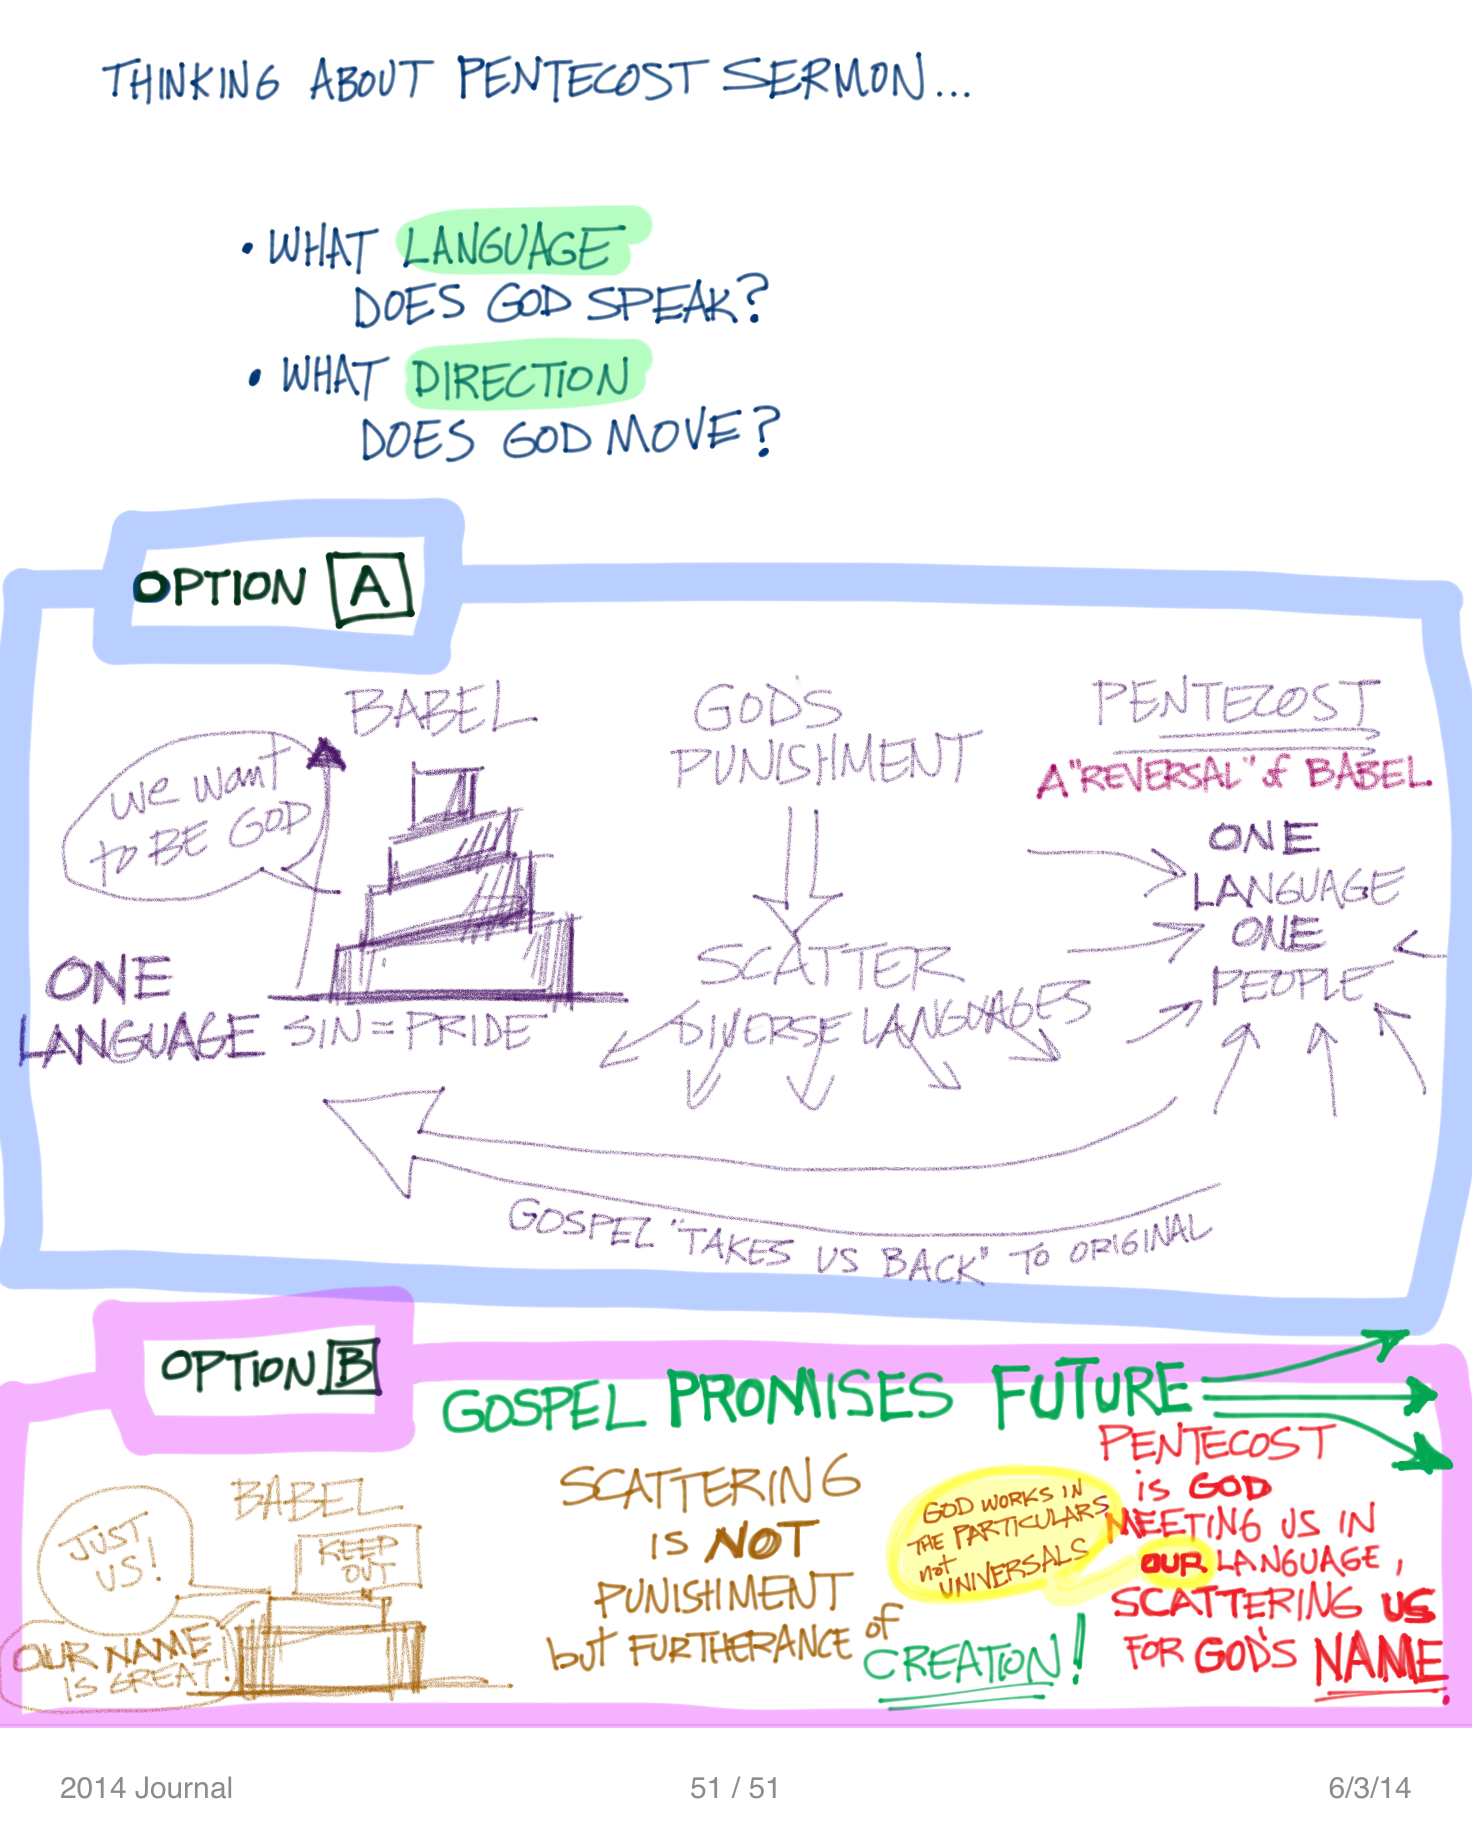 THINKING ABOUT PENTECOST SERMON...
• WHAT LANGUAGE
DOES GOD SPEAK?
• WHAT DIRECTION
DOES GOD MOVE?
OPTION A
BABEL
we want
to BE GOD
ONE
LANGUAGE
SIN = PRIDE
GOD'S
PUNISHMENT
SCATTER
DIVERSE LANGUAGES
PENTECOST
A "REVERSAL" of BABEL
ONE
LANGUAGE
ONE
PEOPLE
GOSPEL "TAKES US BACK" TO ORIGINAL
OPTION B
GOSPEL PROMISES FUTURE
BABEL
JUST
US!
KEEP
OUT
OUR NAME
IS GREAT!
SCATTERING
IS NOT
PUNISHMENT
but FURTHERANCE of
CREATION!
GOD WORKS IN
THE PARTICULARS
not
UNIVERSALS
PENTECOST
is GOD
MEETING US IN
OUR LANGUAGE,
SCATTERING US
FOR GOD'S NAME.
2014 Journal
51 / 51
6/3/14